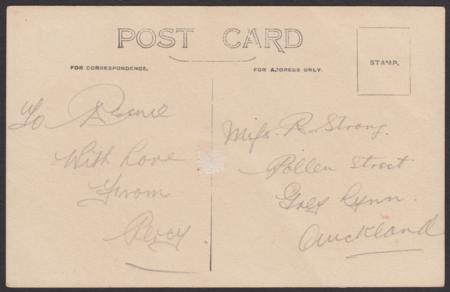 POST CARD
FOR CORRESPONDENCE.
FOR ADDRESS ONLY.
STAMP.
To
With Love
From
Percy
Miss. R. Strong.
Pollen Street
Grey Lynn.
Auckland